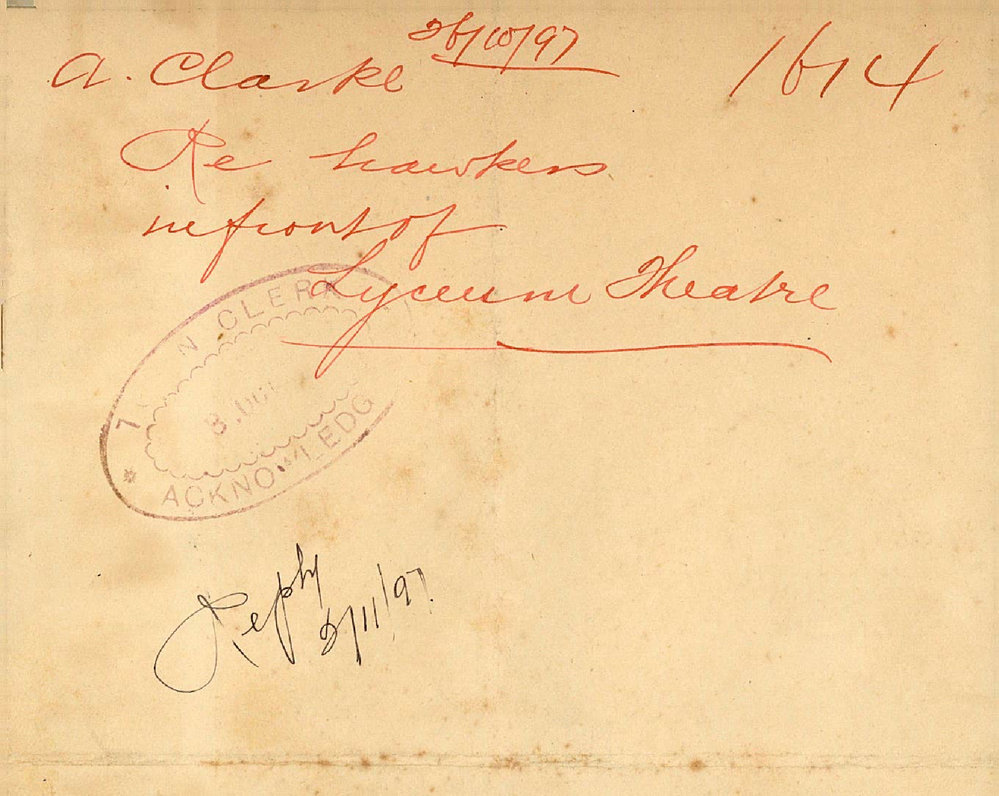 26/10/97
A. Clarke 1614
Re hawkers
in front of
Lyceum Theatre
N CLERK
ACKNOWLEDG
Reply
2/11/97.